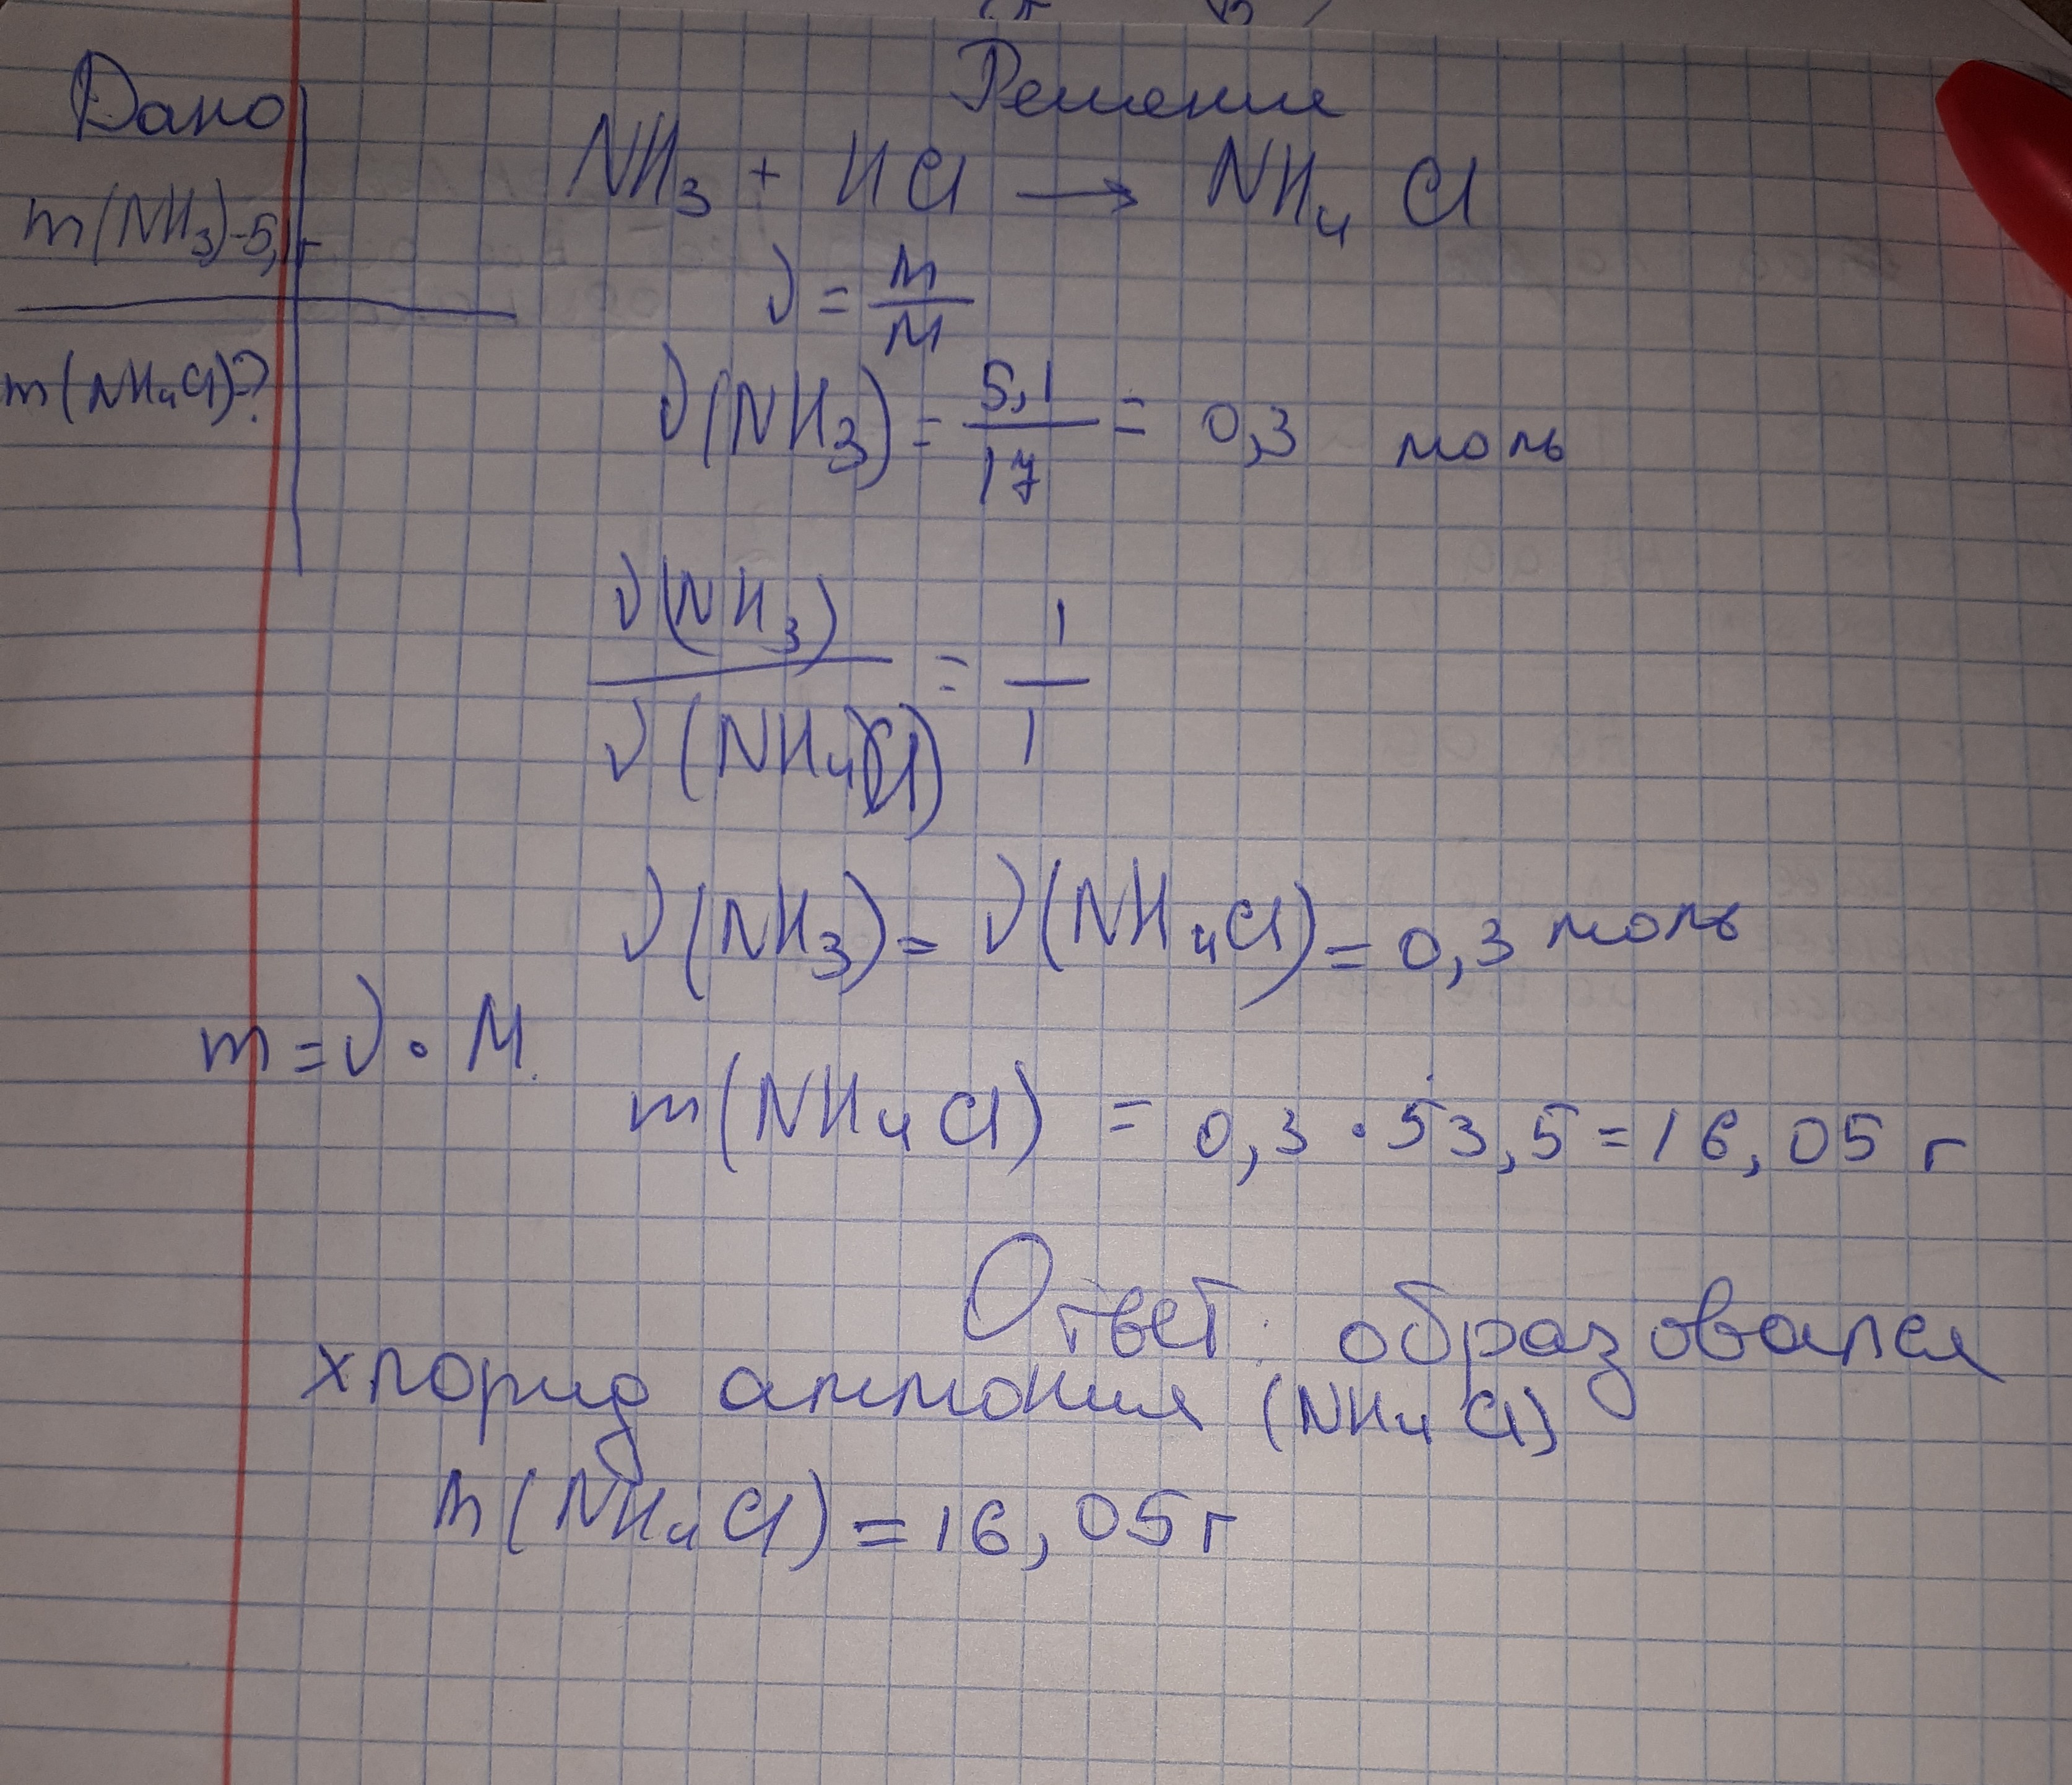 Дано
Решение
NH₃ + HCl → NH₄ Cl
m(NH₃)-5,1г
ν = m/M
m(NH₄Cl)?
ν(NH₃) = 5,1/17 = 0,3 моль
ν(NH₃)/ν(NH₄Cl) = 1/1
ν(NH₃) = ν(NH₄Cl) = 0,3 моль
m = ν · M
m(NH₄Cl) = 0,3 · 53,5 = 16,05 г
Ответ: образовался
хлорид аммония (NH₄Cl)
m(NH₄Cl) = 16,05 г